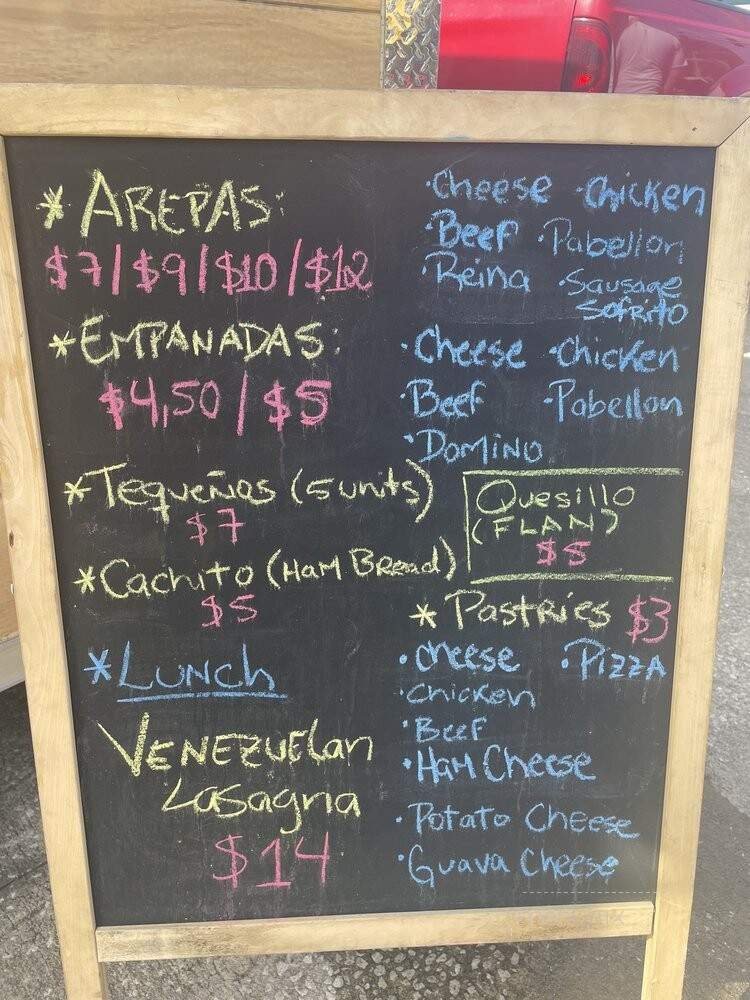 * AREPAS:
$7/$9/$10/$12
·Cheese ·Chicken
·Beef ·Pabellon
·Reina ·Sausage
Sofrito
*EMPANADAS:
$4,50/$5
·Cheese ·Chicken
·Beef ·Pabellon
·DOMINO
*Tequeños (5 units)
$7
Quesillo
(FLAN)
$5
*Cachito (HAM Bread)
$5
* Pastries $3
·cheese ·PIZZA
·Chicken
·Beef
·HAM Cheese
·Potato Cheese
·Guava Cheese
*LUNCh
VENEZUElan
Lasagna
$14